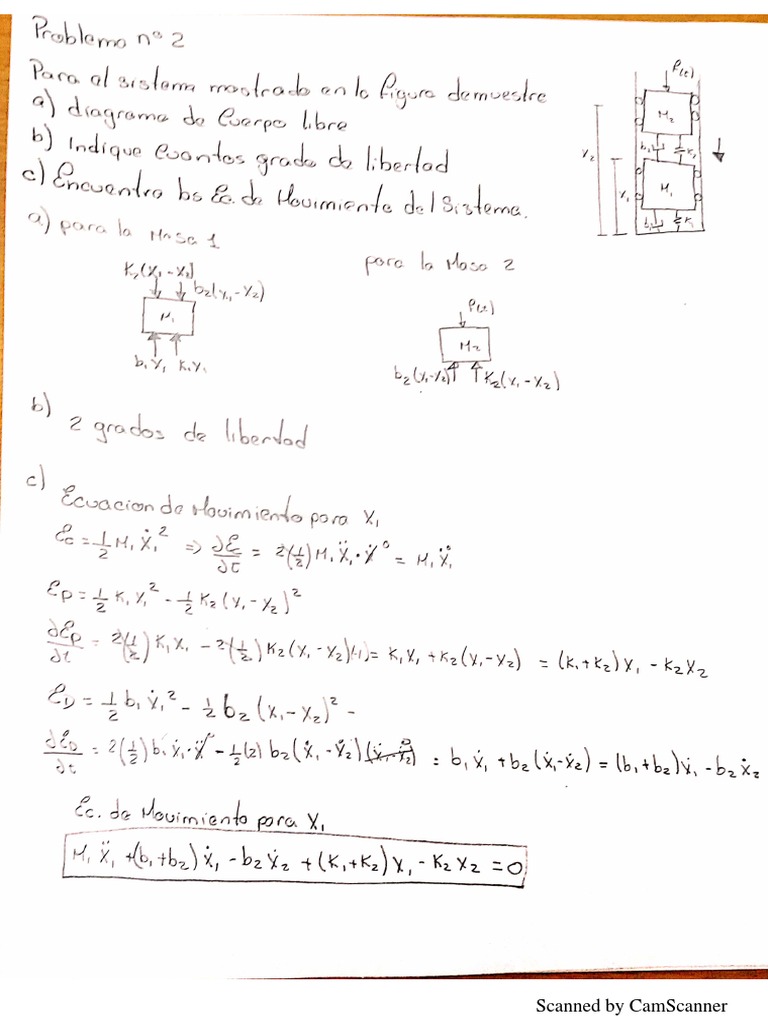 Problema nº 2
Para al sistema mostrado en la figura demuestre
a) diagrama de Cuerpo libre
b) Indique Cuantos grado de libertad
c) Encuentra las Ec. de Movimiento del Sistema.
P(t)
M₂
b₂ K₂
X₂
X₁
M₁
b₁ K₁
a) para la Masa 1
K₂(X₁-X₂)
b₂(X₁-X₂)
M₁
b₁X₁ K₁X₁
para la Masa 2
P(t)
M₂
b₂(X₁-X₂) K₂(X₁-X₂)
b)
2 grados de libertad
c)
Ecuacion de Movimiento para X₁
Ec = 1/2 M₁Ẋ₁² => ∂Ec/∂t = 2(1/2)M₁Ẋ₁·Ẍ⁰ = M₁Ẍ₁
Ep = 1/2 K₁X₁² - 1/2 K₂(X₁-X₂)²
∂Ep/∂t = 2(1/2)K₁X₁ - 2(1/2)K₂(X₁-X₂)(-1) = K₁X₁ + K₂(X₁-X₂) = (K₁+K₂)X₁ - K₂X₂
ED = 1/2 b₁Ẋ₁² - 1/2 b₂(X₁-X₂)² -
∂ED/∂t = 2(1/2)b₁Ẋ₁·Ẍ - 1/2(2)b₂(Ẋ₁-Ẋ₂) = b₁Ẋ₁ + b₂(Ẋ₁-Ẋ₂) = (b₁+b₂)Ẋ₁ - b₂Ẋ₂
Ec. de Movimiento para X₁
M₁Ẍ₁ + (b₁+b₂)Ẋ₁ - b₂Ẋ₂ + (K₁+K₂)X₁ - K₂X₂ = 0
Scanned by CamScanner